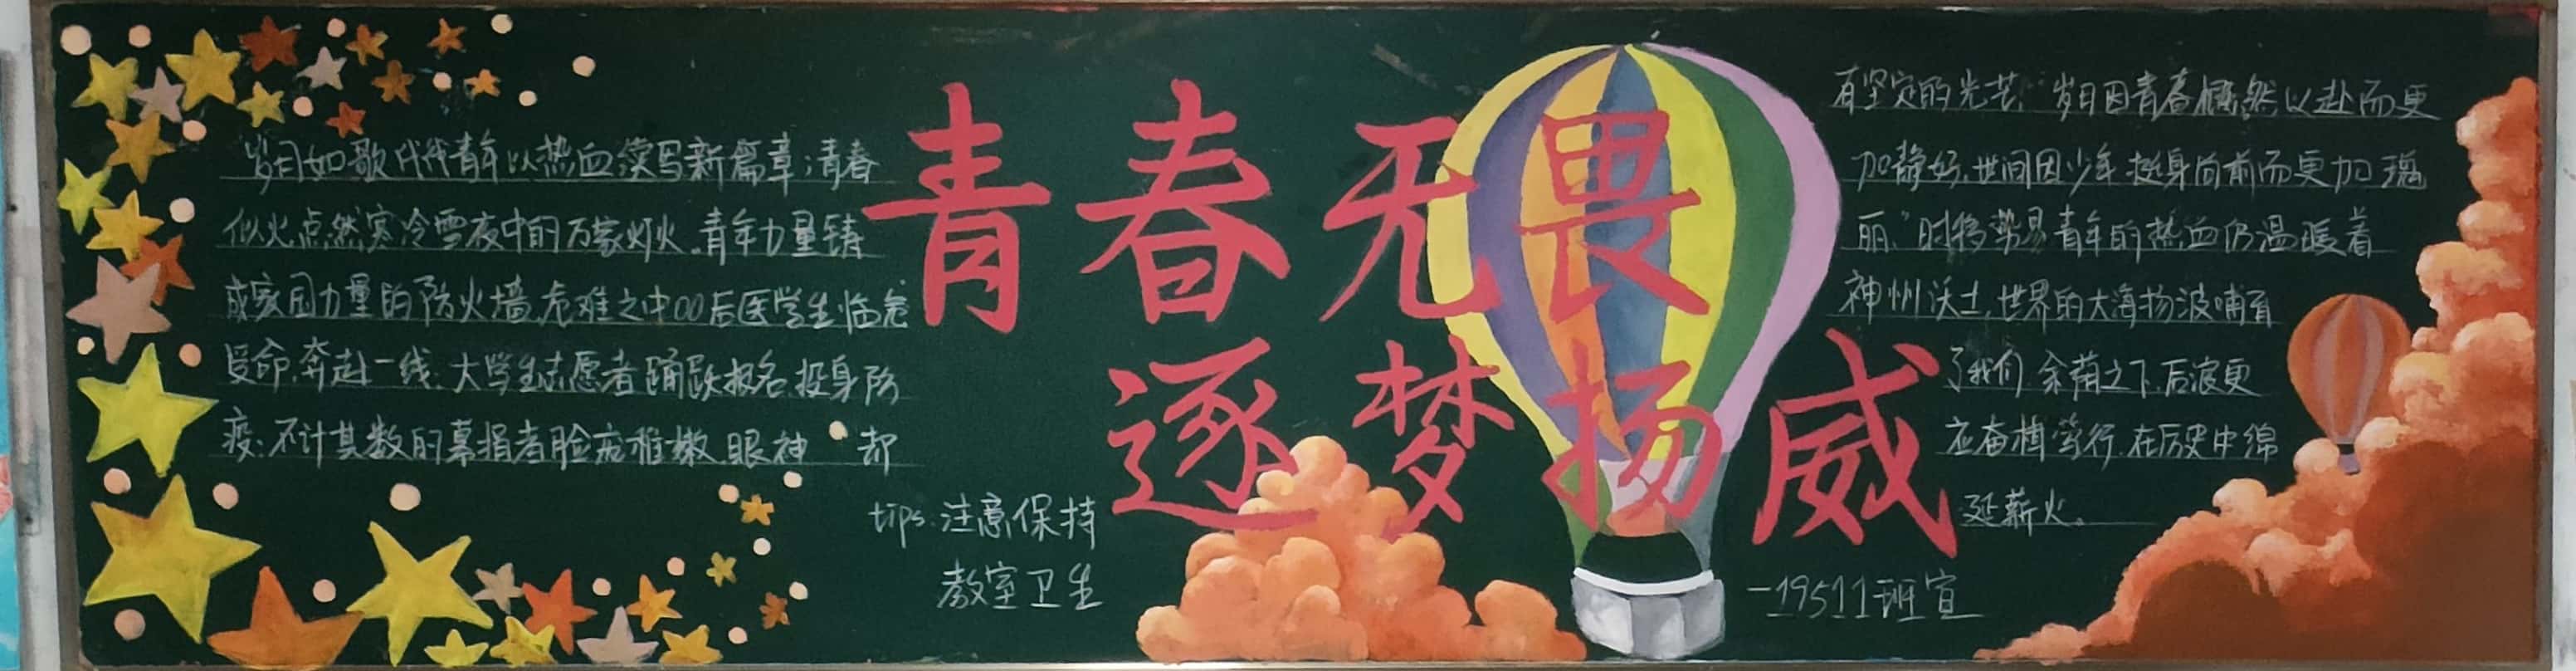 岁月如歌代代青年以热血续写新篇章；青春
似火点燃寒冷雪夜中的万家灯火。青年力量铸
成家国力量的防火墙,危难之中00后医学生临危
受命,奔赴一线；大学生志愿者踊跃报名,投身防
疫；不计其数的募捐者脸庞稚嫩,眼神 却
tips:注意保持
教室卫生
青春无畏
逐梦扬威
有坚定的光芒。"岁月因青春慨然以赴而更
加静好,世间因少年挺身向前而更加瑰
丽。"时移势易,青年的热血仍温暖着
神州沃土,世界的大海扬波哺育
了我们,余荫之下,后浪更
应奋楫笃行,在历史中绵
延薪火。
—19511班宣